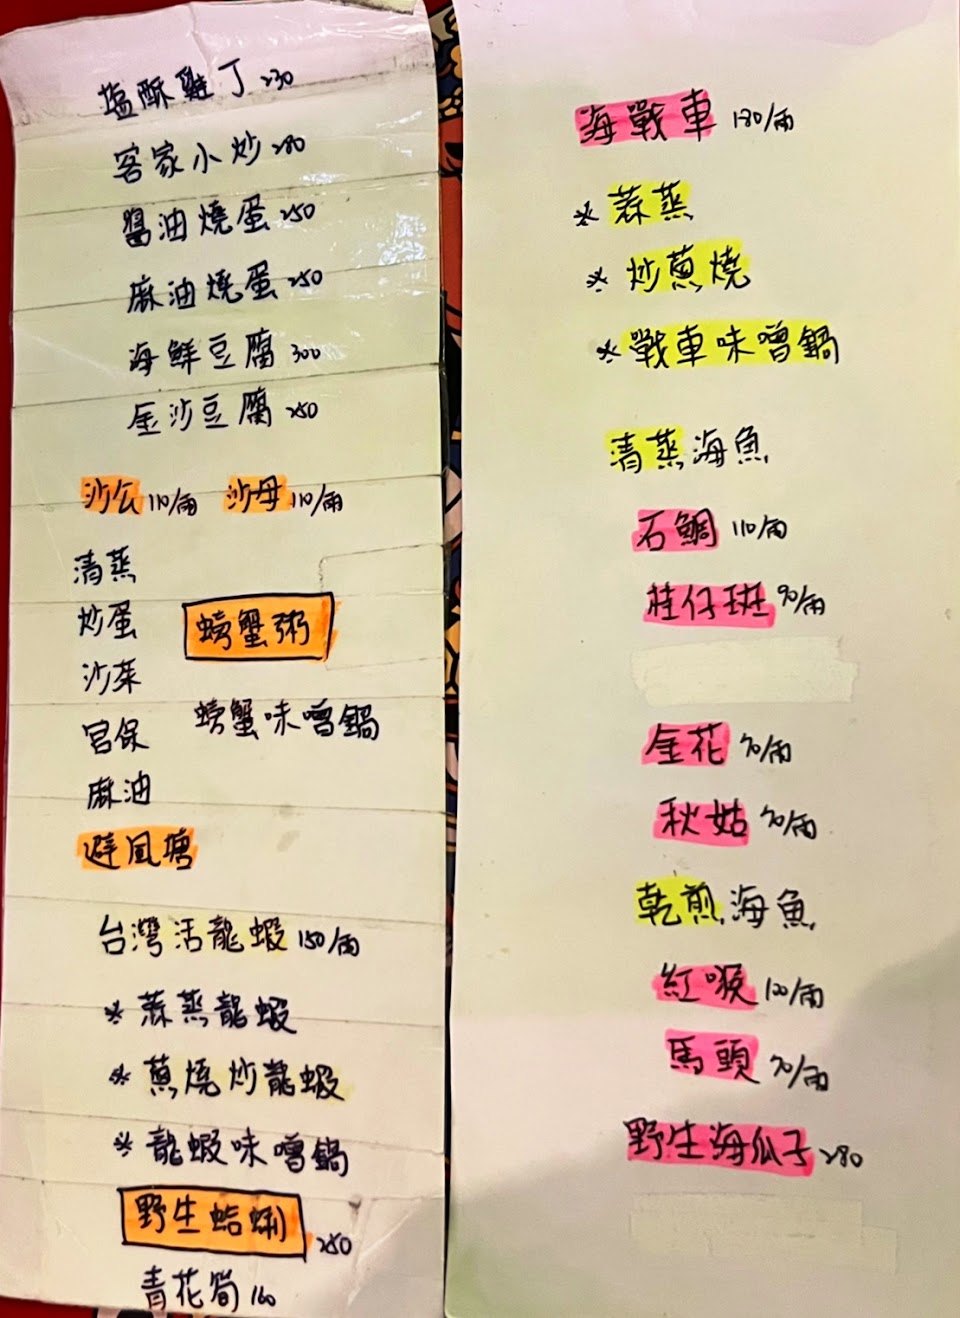 塩酥雞丁 230
客家小炒 280
醬油燒蛋 250
麻油燒蛋 250
海鮮豆腐 300
金沙豆腐 250
沙公 110/兩 沙母 110/兩
清蒸
炒蛋
螃蟹粥
沙茶
宮保
螃蟹味噌鍋
麻油
避風塘
台灣活龍蝦 150/兩
※蒜蒸龍蝦
※蔥燒炒龍蝦
※龍蝦味噌鍋
野生蛤蜊 250
青花筍 160
海戰車 130/兩
※蒜蒸
※炒蔥燒
※戰車味噌鍋
清蒸海魚
石鯛 110/兩
桂仔斑 90/兩
金花 70/兩
秋姑 70/兩
乾煎海魚
紅喉 120/兩
馬頭 70/兩
野生海瓜子 280